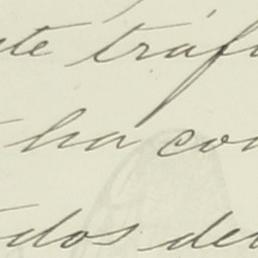 te tráf
ha co
dos de